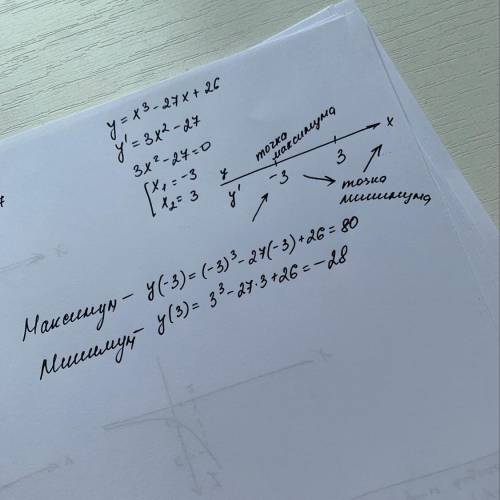 y = x³ - 27x + 26
y' = 3x² - 27
3x² - 27 = 0
x₁ = -3
x₂ = 3
точка
максимума
y
-3
3
x
y'
точка
минимума
Максимум - y(-3) = (-3)³ - 27(-3) + 26 = 80
Минимум - y(3) = 3³ - 27·3 + 26 = -28